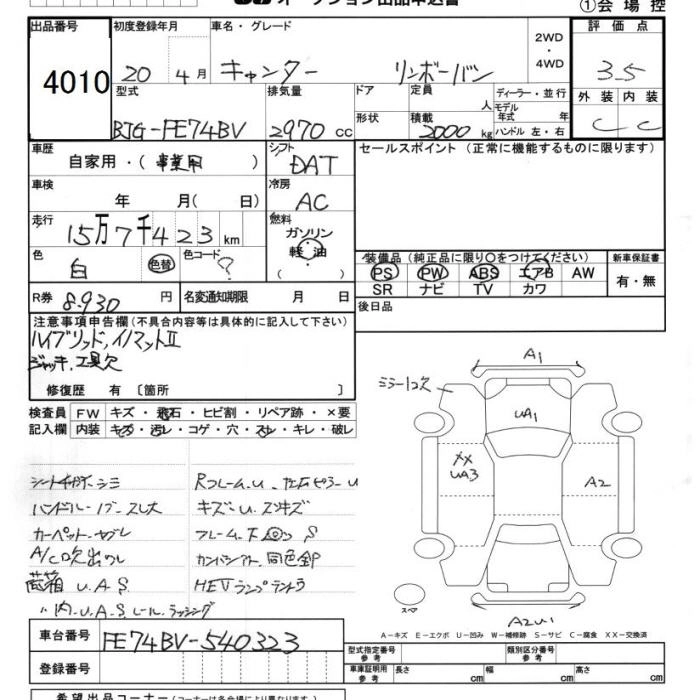 オークション出品申込書
①会場控
出品番号 初度登録年月 車名・グレード 2WD・4WD 評価点
4010 20 4月 キャンター リンボーバン 3.5
型式 排気量 ドア 定員 人 ディーラー・並行 外装 内装
モデル年式 年
BJG-FE74BV 2970 cc 形状 積載 2000 kg ハンドル 左・右 C C
車歴 自家用・(事業用) シフト DAT セールスポイント(正常に機能するものに限ります)
車検 年 月( 日) 冷房 AC
走行 15万7千423km 燃料 ガソリン 軽油 ( )
色 白 色替 色コード ?
装備品(純正品に限り○をつけてください) 新車保証書
PS PW ABS エアB AW 有・無
SR ナビ TV カワ
R券 8.930 円 名変通知期限 月 日 後日品
注意事項申告欄(不具合内容等は具体的に記入して下さい)
ハイブリッド,イノマットⅡ
ジャッキ,工具欠
修復歴 有 〔箇所 〕
検査員記入欄 FW キズ・飛石・ヒビ割・リペア跡・×要
内装 キズ・汚レ・コゲ・穴・スレ・キレ・破レ
ミラー1コ欠
A1
UA1
XX UA3
A2
スペア
A2U1
ハンドル・ノブ・スレ大 キズ・U.スリキズ
カーペット.ヤブレ フレーム下 S
A/C吹出ワレ 同色塗
荷箱 U.A.S HEVランプテントウ
〃内.U.A.S レール.ラッシング
A-キズ E-エクボ U-凹み W-補修跡 S-サビ C-腐食 XX-交換済
車台番号 FE74BV-540323
型式指定番号 参考 類別区分番号 参考
登録番号 車庫証明用 参考 長さ cm 幅 cm 高さ cm
希望出品コーナー(コーナーは各会場により異なります)